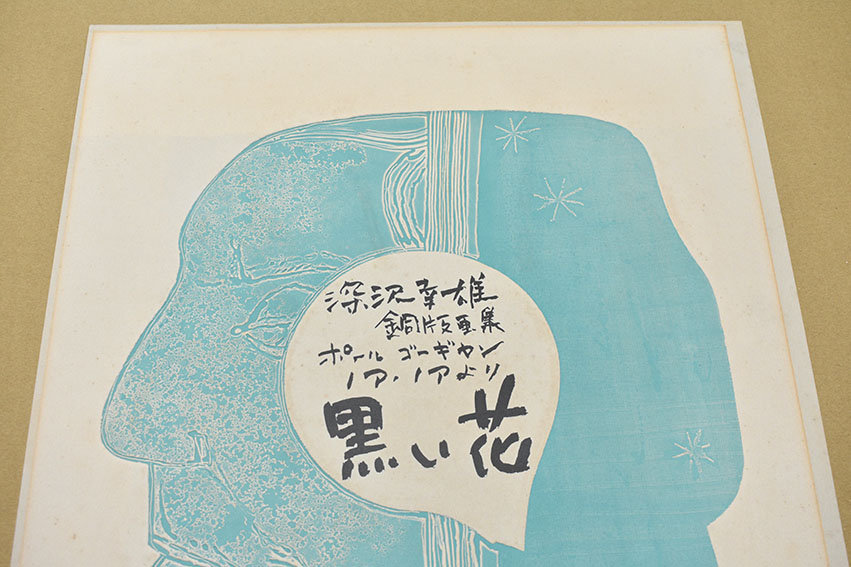 深沢幸雄
銅版画集
ポール ゴーギャン
ノア・ノアより
黒い花